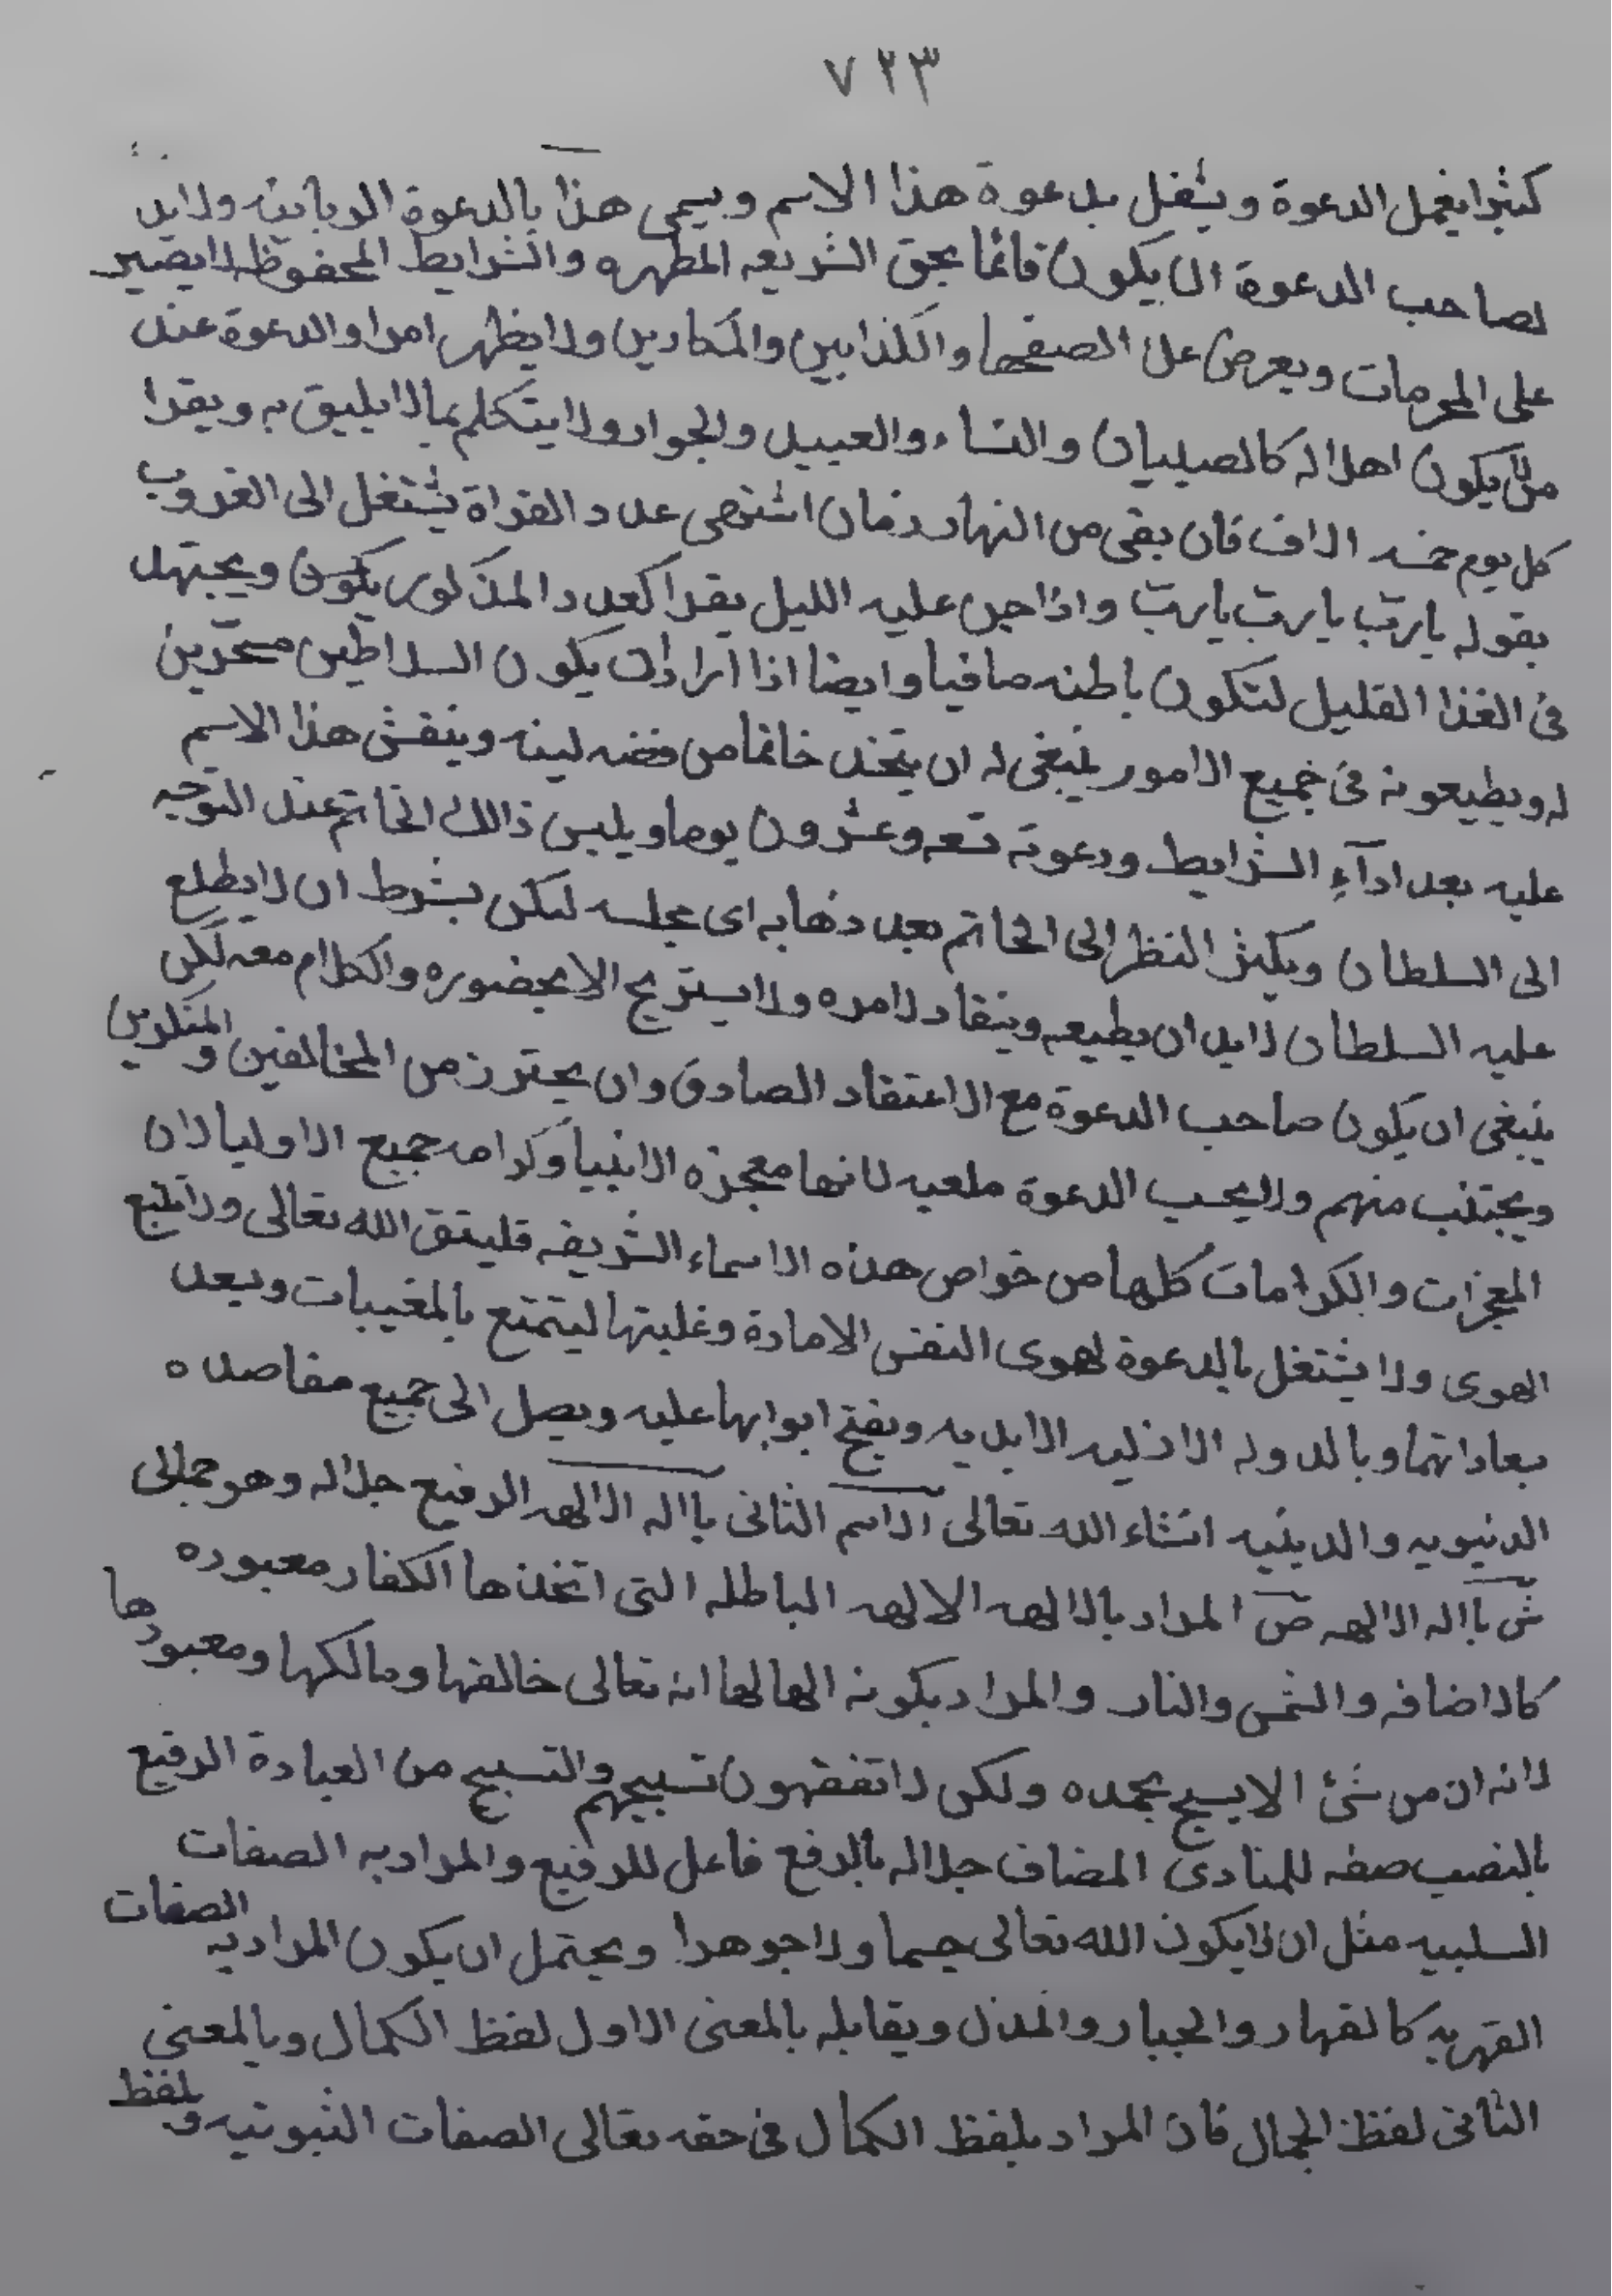 ٧٢٣
كثيرا يغمل الدعوة ويثغل بدعوة هذا الاسم ويسمى هذا بالدعوة الوبائيه ولابد
لصاحب الدعوة ان يكون قائما بحق الشريعه المطهره والشرايط المحفوظه لا يصير
على المحرمات ويعرض عن الصفحها والكذابين والمكارين ولا يظهر امرا والدعوة عند
من لا يكون اهلا له كالصيبيان والنساء والعبيد والجوار ولا يتكلم بما لا يليق به ويقرا
كل يوم خمسه الاف فان بقى من النهار زمان اشتهى عدد القراة يشتغل الى الغروب
بقوله يا رب يا رب يا رب واذا جن عليه الليل يقرا كعدد المذكور يكون ويجتهد
فى الغذا القليل لتكون باطنه صافيا وايضا اذا اراد ان يكون السلاطين مسخرين
له ويطيعونه فى جميع الامور ينبغى له ان يتخذ خاتما من فضه لينه وينقش هذا الاسم
عليه بعد اداء الشرايط ودعوته تسعه وعشرون يوما ويلبس ذالك الخاتم عند التوجه
الى السلطان ويكثر النظر الى الخاتم بعد ذهابه اى مجلسه لكن بشرط ان لا يطلع
عليه السلطان لابد ان يطيعه وينقاد لامره ولا يستريح الا بحضوره والكلام معه لكن
ينبغى ان يكون صاحب الدعوة مع الاعتقاد الصادق وان يحترز من المخالفين والمنكرين
ويجتنب منهم ولا يحسب الدعوة ملعبه لانها معجزه الانبيا وكرامه جميع الاوليا لان
المعجزات والكرامات كلها من خواص هذه الاسماء الشريفه فليتق الله تعالى ولا تتبع
الهوى ولا يشتغل بالدعوة لهوى النفس الامارة وغلبتها ليتمتع بالمغيبات ويعد
بعاداتها وبالدوله الازليه الابديه ويفتح ابوابها عليه ويصل الى جميع مقاصده
الدنيويه والدينيه انشاء الله تعالى الاسم الثانى يا اله الالهه الرفيع جلاله وهو جمالى
ش يا اله الالهه ص المراد بالالهه الالهه الباطله التى اتخذها الكفار معبوده
كالاضافه والشمس والنار والمراد بكونه الها لها انه تعالى خالقها ومالكها ومعبودها
لانه ان من شئ الا يسبح بحمده ولكن لا تفقهون تسبيحهم والتسبيح من العبادة الرفيع
بالنصب صفه للمنادى المضاف جلاله بالرفع فاعل للرفيع والمراد به الصفات
السلبيه مثل ان لا يكون الله تعالى جسما ولا جوهرا ويحتمل ان يكون المراد به الصفات
القهريه كالقهار والجبار والمذل ويقابله بالمعنى الاول لفظ الكمال وبالمعنى
الثانى لفظ الجمال فان المراد بلفظ الكمال فى حقه تعالى الصفات الثبوتيه وبلفظ